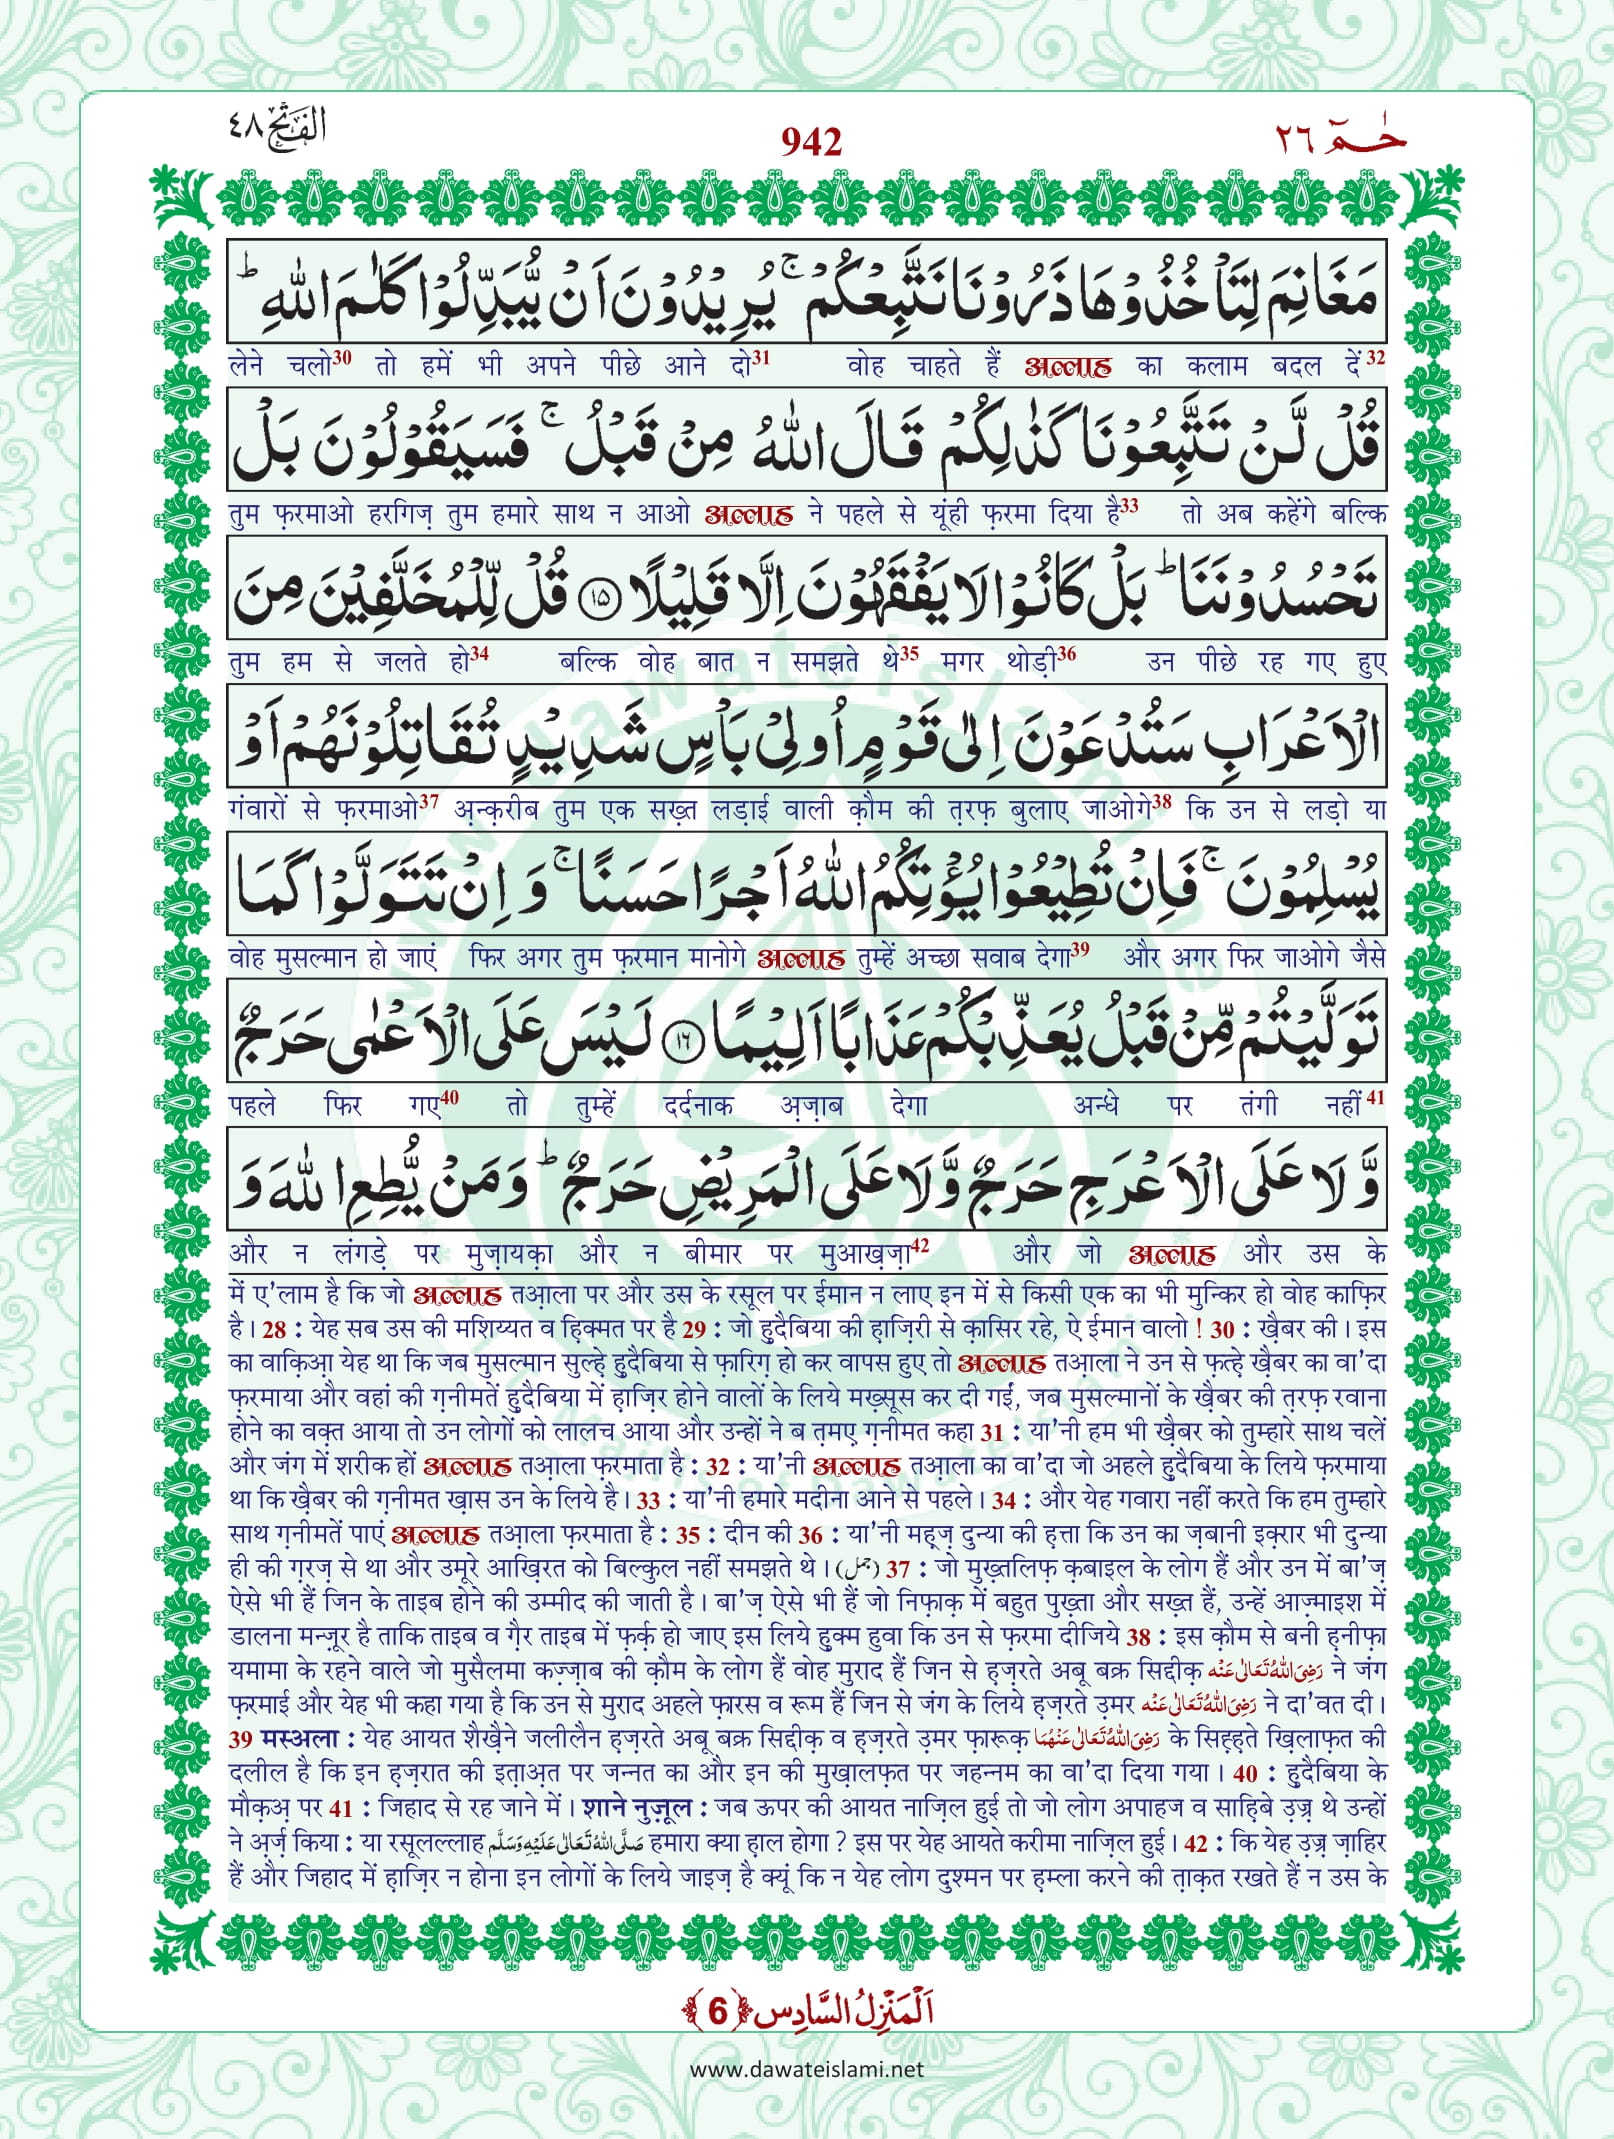 الفتح ٤٨
942
حٰمٓ ٢٦
مَغَانِمَ لِتَاْخُذُوْهَا ذَرُوْنَا نَتَّبِعْكُمْ ۚ یُرِیْدُوْنَ اَنْ یُّبَدِّلُوْا كَلٰمَ اللّٰهِ ؕ
लेने चलो30 तो हमें भी अपने पीछे आने दो31 वोह चाहते हैं अल्लाह का कलाम बदल दें32
قُلْ لَّنْ تَتَّبِعُوْنَا كَذٰلِكُمْ قَالَ اللّٰهُ مِنْ قَبْلُ ۚ فَسَیَقُوْلُوْنَ بَلْ
तुम फ़रमाओ हरगिज़ तुम हमारे साथ न आओ अल्लाह ने पहले से यूंही फ़रमा दिया है33 तो अब कहेंगे बल्कि
تَحْسُدُوْنَنَا ؕ بَلْ كَانُوْا لَا یَفْقَهُوْنَ اِلَّا قَلِیْلًا ﴿۱۵﴾ قُلْ لِّلْمُخَلَّفِیْنَ مِنَ
तुम हम से जलते हो34 बल्कि वोह बात न समझते थे35 मगर थोड़ी36 उन पीछे रह गए हुए
الْاَعْرَابِ سَتُدْعَوْنَ اِلٰى قَوْمٍ اُولِیْ بَاْسٍ شَدِیْدٍ تُقَاتِلُوْنَهُمْ اَوْ
गंवारों से फ़रमाओ37 अ़न्क़रीब तुम एक सख़्त लड़ाई वाली क़ौम की त़रफ़ बुलाए जाओगे38 कि उन से लड़ो या
یُسْلِمُوْنَ ۚ فَاِنْ تُطِیْعُوْا یُؤْتِكُمُ اللّٰهُ اَجْرًا حَسَنًا ۚ وَ اِنْ تَتَوَلَّوْا كَمَا
वोह मुसल्मान हो जाएं फिर अगर तुम फ़रमान मानोगे अल्लाह तुम्हें अच्छा सवाब देगा39 और अगर फिर जाओगे जैसे
تَوَلَّیْتُمْ مِّنْ قَبْلُ یُعَذِّبْكُمْ عَذَابًا اَلِیْمًا ﴿۱۶﴾ لَیْسَ عَلَى الْاَعْمٰى حَرَجٌ
पहले फिर गए40 तो तुम्हें दर्दनाक अ़ज़ाब देगा अन्धे पर तंगी नहीं41
وَّ لَا عَلَى الْاَعْرَجِ حَرَجٌ وَّ لَا عَلَى الْمَرِیْضِ حَرَجٌ ؕ وَ مَنْ یُّطِعِ اللّٰهَ وَ
और न लंगड़े पर मुज़ायक़ा और न बीमार पर मुआख़ज़ा42 और जो अल्लाह और उस के
में ए'लाम है कि जो अल्लाह तआ़ला पर और उस के रसूल पर ईमान न लाए इन में से किसी एक का भी मुन्किर हो वोह काफ़िर
है। 28 : येह सब उस की मशिय्यत व ह़िक्मत पर है 29 : जो हुदैबिया की ह़ाज़िरी से क़ासिर रहे, ऐ ईमान वालो ! 30 : ख़ैबर की। इस
का वाक़िआ़ येह था कि जब मुसल्मान सुल्ह़े हुदैबिया से फ़ारिग़ हो कर वापस हुए तो अल्लाह तआ़ला ने उन से फत्ह़े ख़ैबर का वा'दा
फ़रमाया और वहां की ग़नीमतें हुदैबिया में ह़ाज़िर होने वालों के लिये मख़्सूस कर दी गईं, जब मुसल्मानों के ख़ैबर की त़रफ़ रवाना
होने का वक़्त आया तो उन लोगों को लालच आया और उन्हों ने ब त़मए ग़नीमत कहा 31 : या'नी हम भी ख़ैबर को तुम्हारे साथ चलें
और जंग में शरीक हों अल्लाह तआ़ला फ़रमाता है : 32 : या'नी अल्लाह तआ़ला का वा'दा जो अहले हुदैबिया के लिये फ़रमाया
था कि ख़ैबर की ग़नीमत ख़ास उन के लिये है। 33 : या'नी हमारे मदीना आने से पहले। 34 : और येह गवारा नहीं करते कि हम तुम्हारे
साथ ग़नीमतें पाएं अल्लाह तआ़ला फ़रमाता है : 35 : दीन की 36 : या'नी मह़्ज़ दुन्या की ह़त्ता कि उन का ज़बानी इक़्रार भी दुन्या
ही की ग़रज़ से था और उमूरे आख़िरत को बिल्कुल नहीं समझते थे। (جمل) 37 : जो मुख़्तलिफ़ क़बाइल के लोग हैं और उन में बा'ज़
ऐसे भी हैं जिन के ताइब होने की उम्मीद की जाती है। बा'ज़ ऐसे भी हैं जो निफ़ाक़ में बहुत पुख़्ता और सख़्त हैं, उन्हें आज़्माइश में
डालना मन्ज़ूर है ताकि ताइब व ग़ैर ताइब में फ़र्क़ हो जाए इस लिये हुक्म हुवा कि उन से फ़रमा दीजिये 38 : इस क़ौम से बनी ह़नीफ़ा
यमामा के रहने वाले जो मुसैलमा कज़्ज़ाब की क़ौम के लोग हैं वोह मुराद हैं जिन से ह़ज़रते अबू बक्र सिद्दीक़ رَضِیَ اللّٰہُ تَعَالٰی عَنْہ ने जंग
फ़रमाई और येह भी कहा गया है कि उन से मुराद अहले फ़ारस व रूम हैं जिन से जंग के लिये ह़ज़रते उ़मर رَضِیَ اللّٰہُ تَعَالٰی عَنْہ ने दा'वत दी।
39 मस्अला : येह आयत शैख़ैने जलीलैन ह़ज़रते अबू बक्र सिद्दीक़ व ह़ज़रते उ़मर फ़ारूक़ رَضِیَ اللّٰہُ تَعَالٰی عَنْہُمَا के सिह़्ह़ते ख़िलाफ़त की
दलील है कि इन ह़ज़रात की इत़ाअ़त पर जन्नत का और इन की मुख़ालफ़त पर जहन्नम का वा'दा दिया गया। 40 : हुदैबिया के
मौक़अ़ पर 41 : जिहाद से रह जाने में। शाने नुज़ूल : जब ऊपर की आयत नाज़िल हुई तो जो लोग अपाहज व साहि़बे उ़ज़्र थे उन्हों
ने अ़र्ज़ किया : या रसूलल्लाह صَلَّی اللّٰہُ تَعَالٰی عَلَیْہِ وَسَلَّم हमारा क्या ह़ाल होगा ? इस पर येह आयते करीमा नाज़िल हुई। 42 : कि येह उ़ज़्र ज़ाहिर
हैं और जिहाद में ह़ाज़िर न होना इन लोगों के लिये जाइज़ है क्यूं कि न येह लोग दुश्मन पर ह़म्ला करने की त़ाक़त रखते हैं न उस के
اَلْمَنْزِلُ السَّادِس ﴿6﴾
www.dawateislami.net